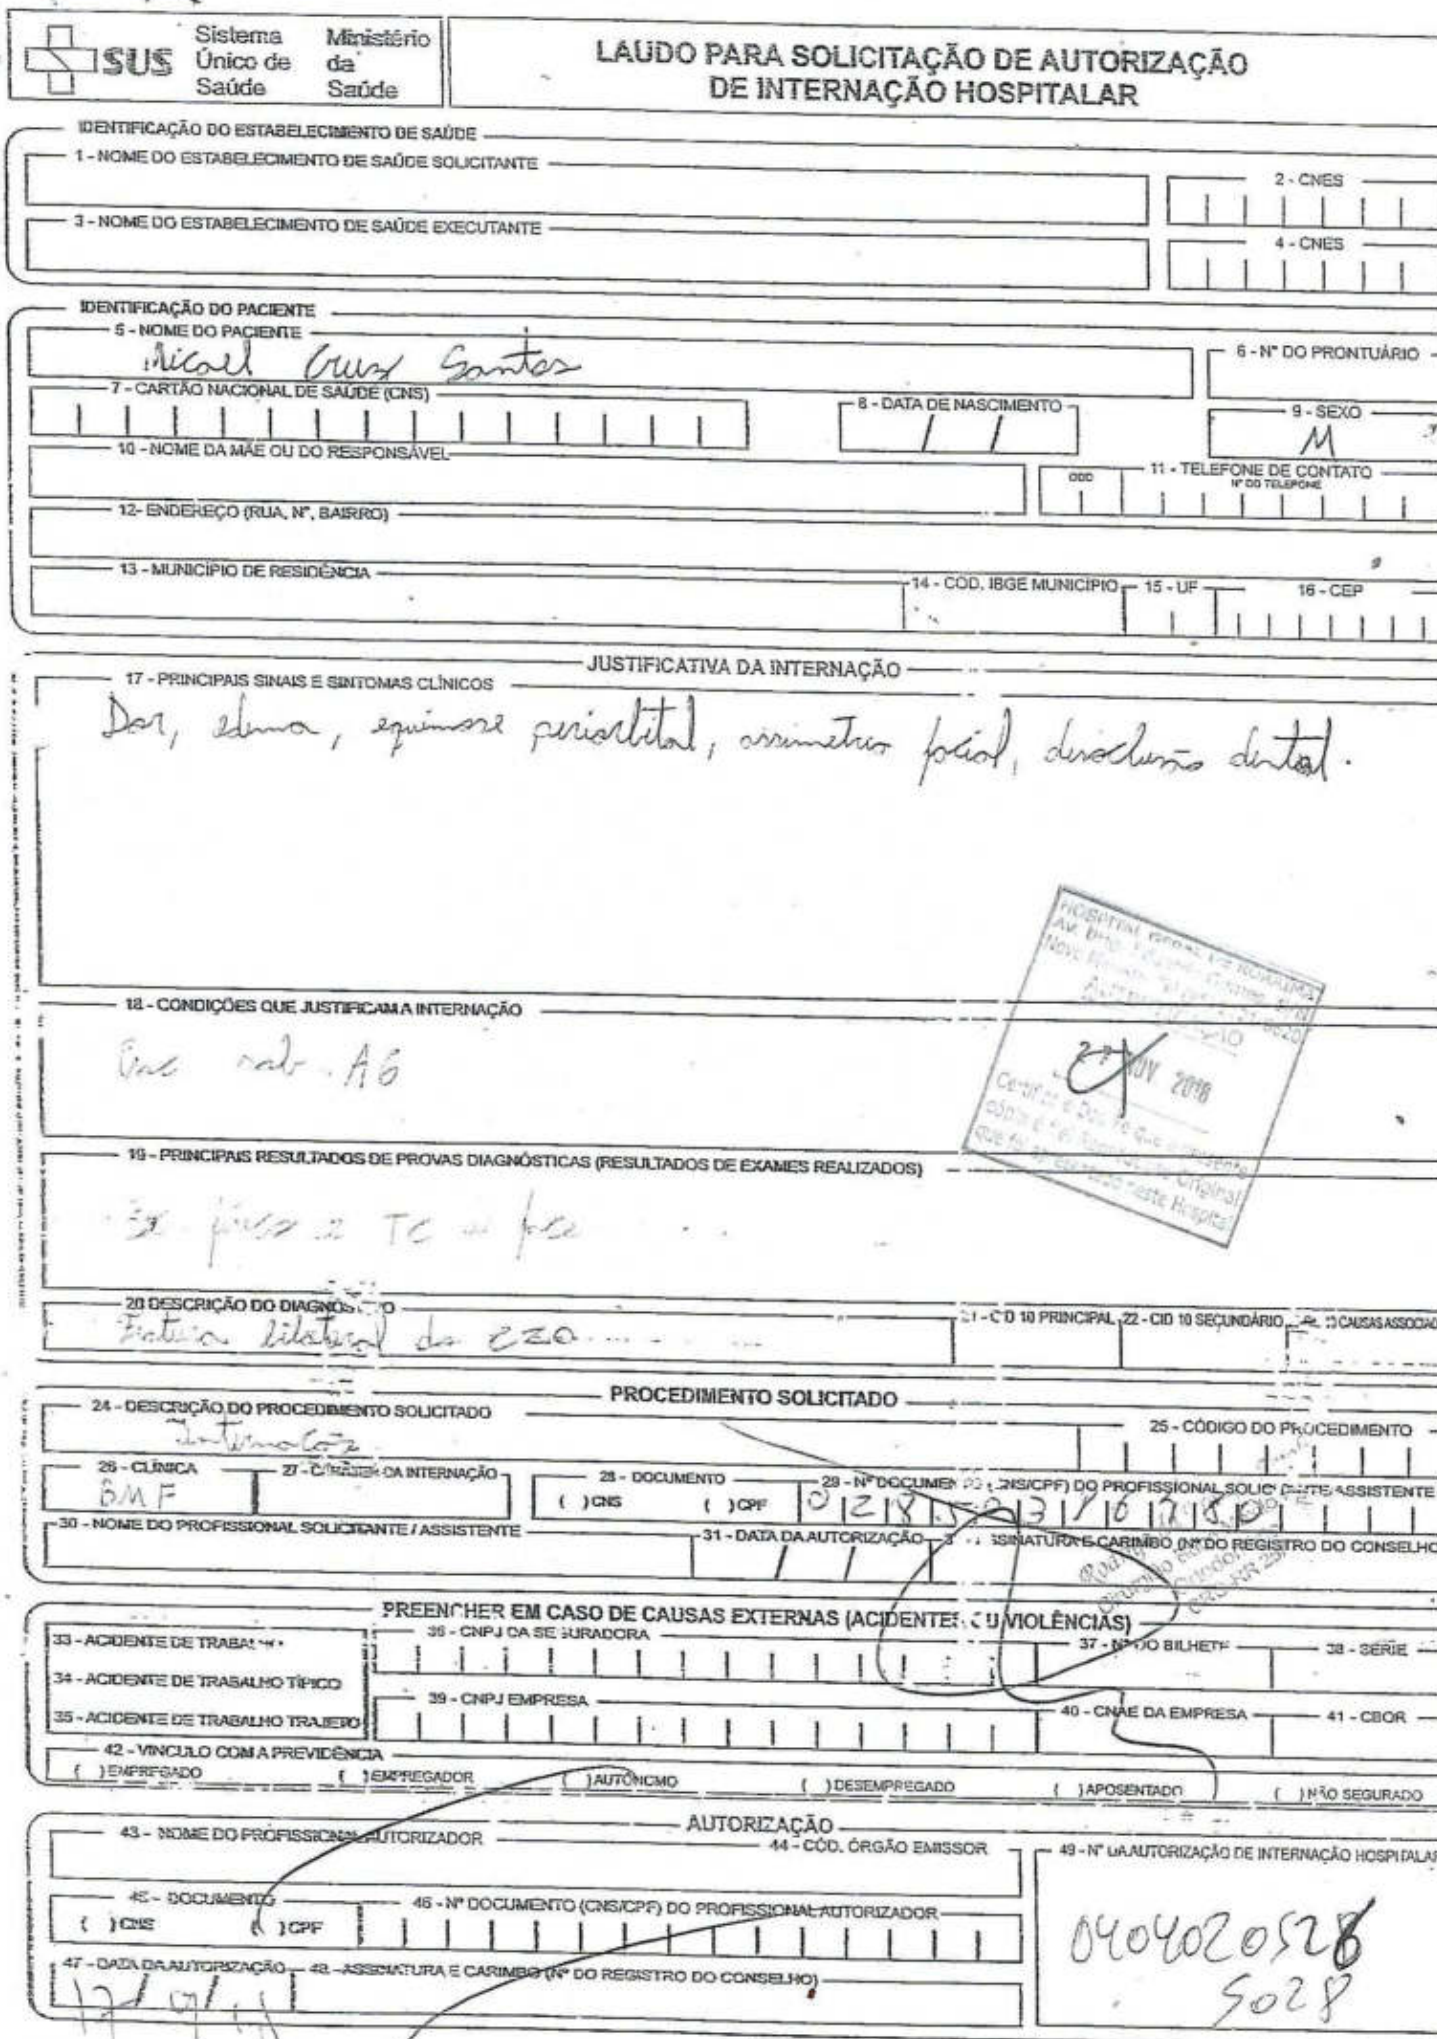 SUS Sistema Único de Saúde Ministério da Saúde
LAUDO PARA SOLICITAÇÃO DE AUTORIZAÇÃO
DE INTERNAÇÃO HOSPITALAR
IDENTIFICAÇÃO DO ESTABELECIMENTO DE SAÚDE
1 - NOME DO ESTABELECIMENTO DE SAÚDE SOLICITANTE
2 - CNES
3 - NOME DO ESTABELECIMENTO DE SAÚDE EXECUTANTE
4 - CNES
IDENTIFICAÇÃO DO PACIENTE
5 - NOME DO PACIENTE
6 - Nº DO PRONTUÁRIO
Micael Cruz Santos
7 - CARTÃO NACIONAL DE SAÚDE (CNS)
8 - DATA DE NASCIMENTO
9 - SEXO
M
10 - NOME DA MÃE OU DO RESPONSÁVEL
11 - TELEFONE DE CONTATO
DDD Nº DO TELEFONE
12- ENDEREÇO (RUA, Nº, BAIRRO)
13 - MUNICÍPIO DE RESIDÊNCIA
14 - COD. IBGE MUNICÍPIO
15 - UF
16 - CEP
JUSTIFICATIVA DA INTERNAÇÃO
17 - PRINCIPAIS SINAIS E SINTOMAS CLÍNICOS
Dor, edema, equimose periorbital, assimetria facial, desoclusão dental.
HOSPITAL GERAL DE RORAIMA
27 NOV 2018
Certifico e Dou Fé que a presente
que foi apresentado neste Hospital
18 - CONDIÇÕES QUE JUSTIFICAM A INTERNAÇÃO
sob AG
19 - PRINCIPAIS RESULTADOS DE PROVAS DIAGNÓSTICAS (RESULTADOS DE EXAMES REALIZADOS)
Ex físico e TC de face
20 DESCRIÇÃO DO DIAGNÓSTICO
21 - CID 10 PRINCIPAL
22 - CID 10 SECUNDÁRIO
CAUSAS ASSOCIAD
Fratura bilateral do CZO
PROCEDIMENTO SOLICITADO
24 - DESCRIÇÃO DO PROCEDIMENTO SOLICITADO
25 - CÓDIGO DO PROCEDIMENTO
Internação
26 - CLÍNICA
BMF
27 - CARÁTER DA INTERNAÇÃO
28 - DOCUMENTO
( ) CNS ( ) CPF
29 - Nº DOCUMENTO (CNS/CPF) DO PROFISSIONAL SOLICITANTE/ASSISTENTE
30 - NOME DO PROFISSIONAL SOLICITANTE / ASSISTENTE
31 - DATA DA AUTORIZAÇÃO
ASSINATURA E CARIMBO (Nº DO REGISTRO DO CONSELHO
PREENCHER EM CASO DE CAUSAS EXTERNAS (ACIDENTES OU VIOLÊNCIAS)
33 - ACIDENTE DE TRABALHO
36 - CNPJ DA SEGURADORA
37 - Nº DO BILHETE
38 - SERIE
34 - ACIDENTE DE TRABALHO TÍPICO
39 - CNPJ EMPRESA
40 - CNAE DA EMPRESA
41 - CBOR
35 - ACIDENTE DE TRABALHO TRAJETO
42 - VINCULO COM A PREVIDÊNCIA
( ) EMPREGADO ( ) EMPREGADOR ( ) AUTÔNOMO ( ) DESEMPREGADO ( ) APOSENTADO ( ) NÃO SEGURADO
AUTORIZAÇÃO
43 - NOME DO PROFISSIONAL AUTORIZADOR
44 - CÓD. ÓRGÃO EMISSOR
49 - Nº DA AUTORIZAÇÃO DE INTERNAÇÃO HOSPITALAR
45 - DOCUMENTO
( ) CNS ( ) CPF
46 - Nº DOCUMENTO (CNS/CPF) DO PROFISSIONAL AUTORIZADOR
0404020528
5028
47 - DATA DA AUTORIZAÇÃO
48 - ASSINATURA E CARIMBO (Nº DO REGISTRO DO CONSELHO)